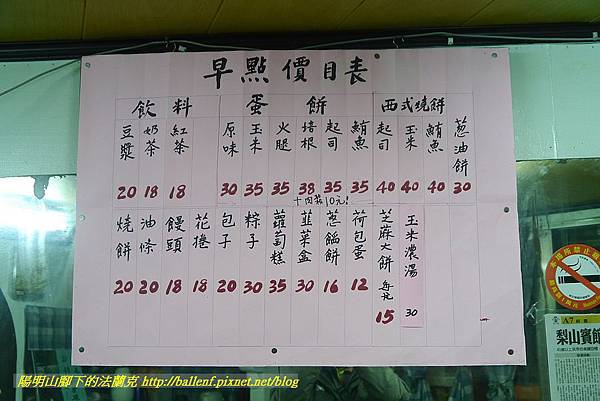 早點價目表
飲料 蛋餅 西式燒餅
豆漿 20
奶茶 18
紅茶 18
原味 30
玉米 35
火腿 35
培根 38
起司 35
鮪魚 35
起司 40
玉米 40
鮪魚 40
蔥油餅 30
十肉鬆10元!
燒餅 20
油條 20
饅頭 18
花捲 18
包子 20
粽子 30
蘿蔔糕 35
韮菜盒 30
蔥餡餅 16
荷包蛋 12
芝蔴大餅 15
玉米濃湯 30
A7
梨山賓館
陽明山腳下的法蘭克 http://ballenf.pixnet.net/blog